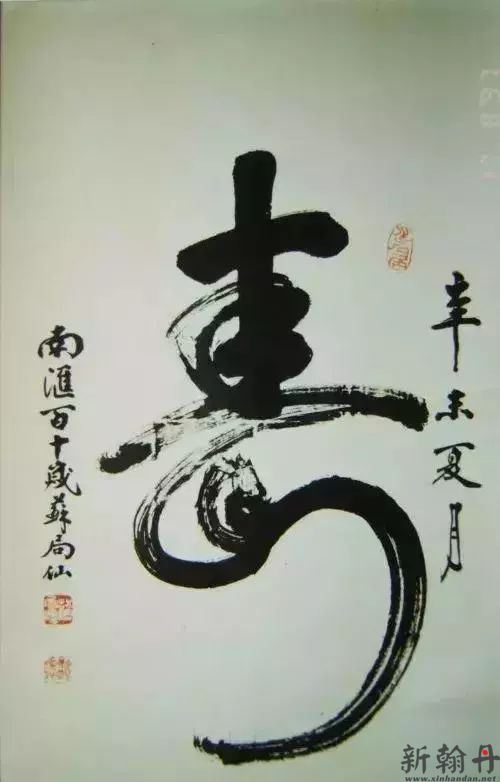 辛未夏月
壽
南滙百十歲蘇局仙
新翰丹
www.xinhandan.net